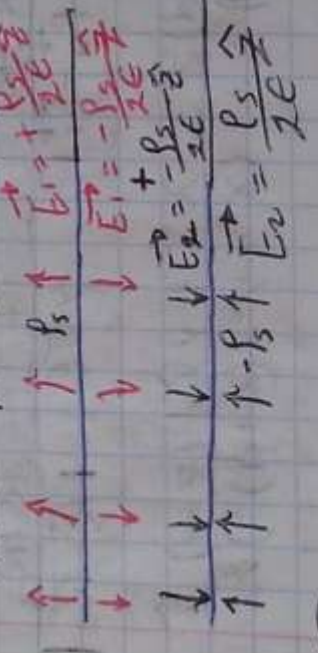 ρs $\vec{E}_1 = +\frac{\rho_s}{2\epsilon}\hat{z}$
$\vec{E}_1 = -\frac{\rho_s}{2\epsilon}\hat{z}$
+
$\vec{E}_2 = -\frac{\rho_s}{2\epsilon}\hat{z}$
-ρs $\vec{E}_2 = \frac{\rho_s}{2\epsilon}\hat{z}$